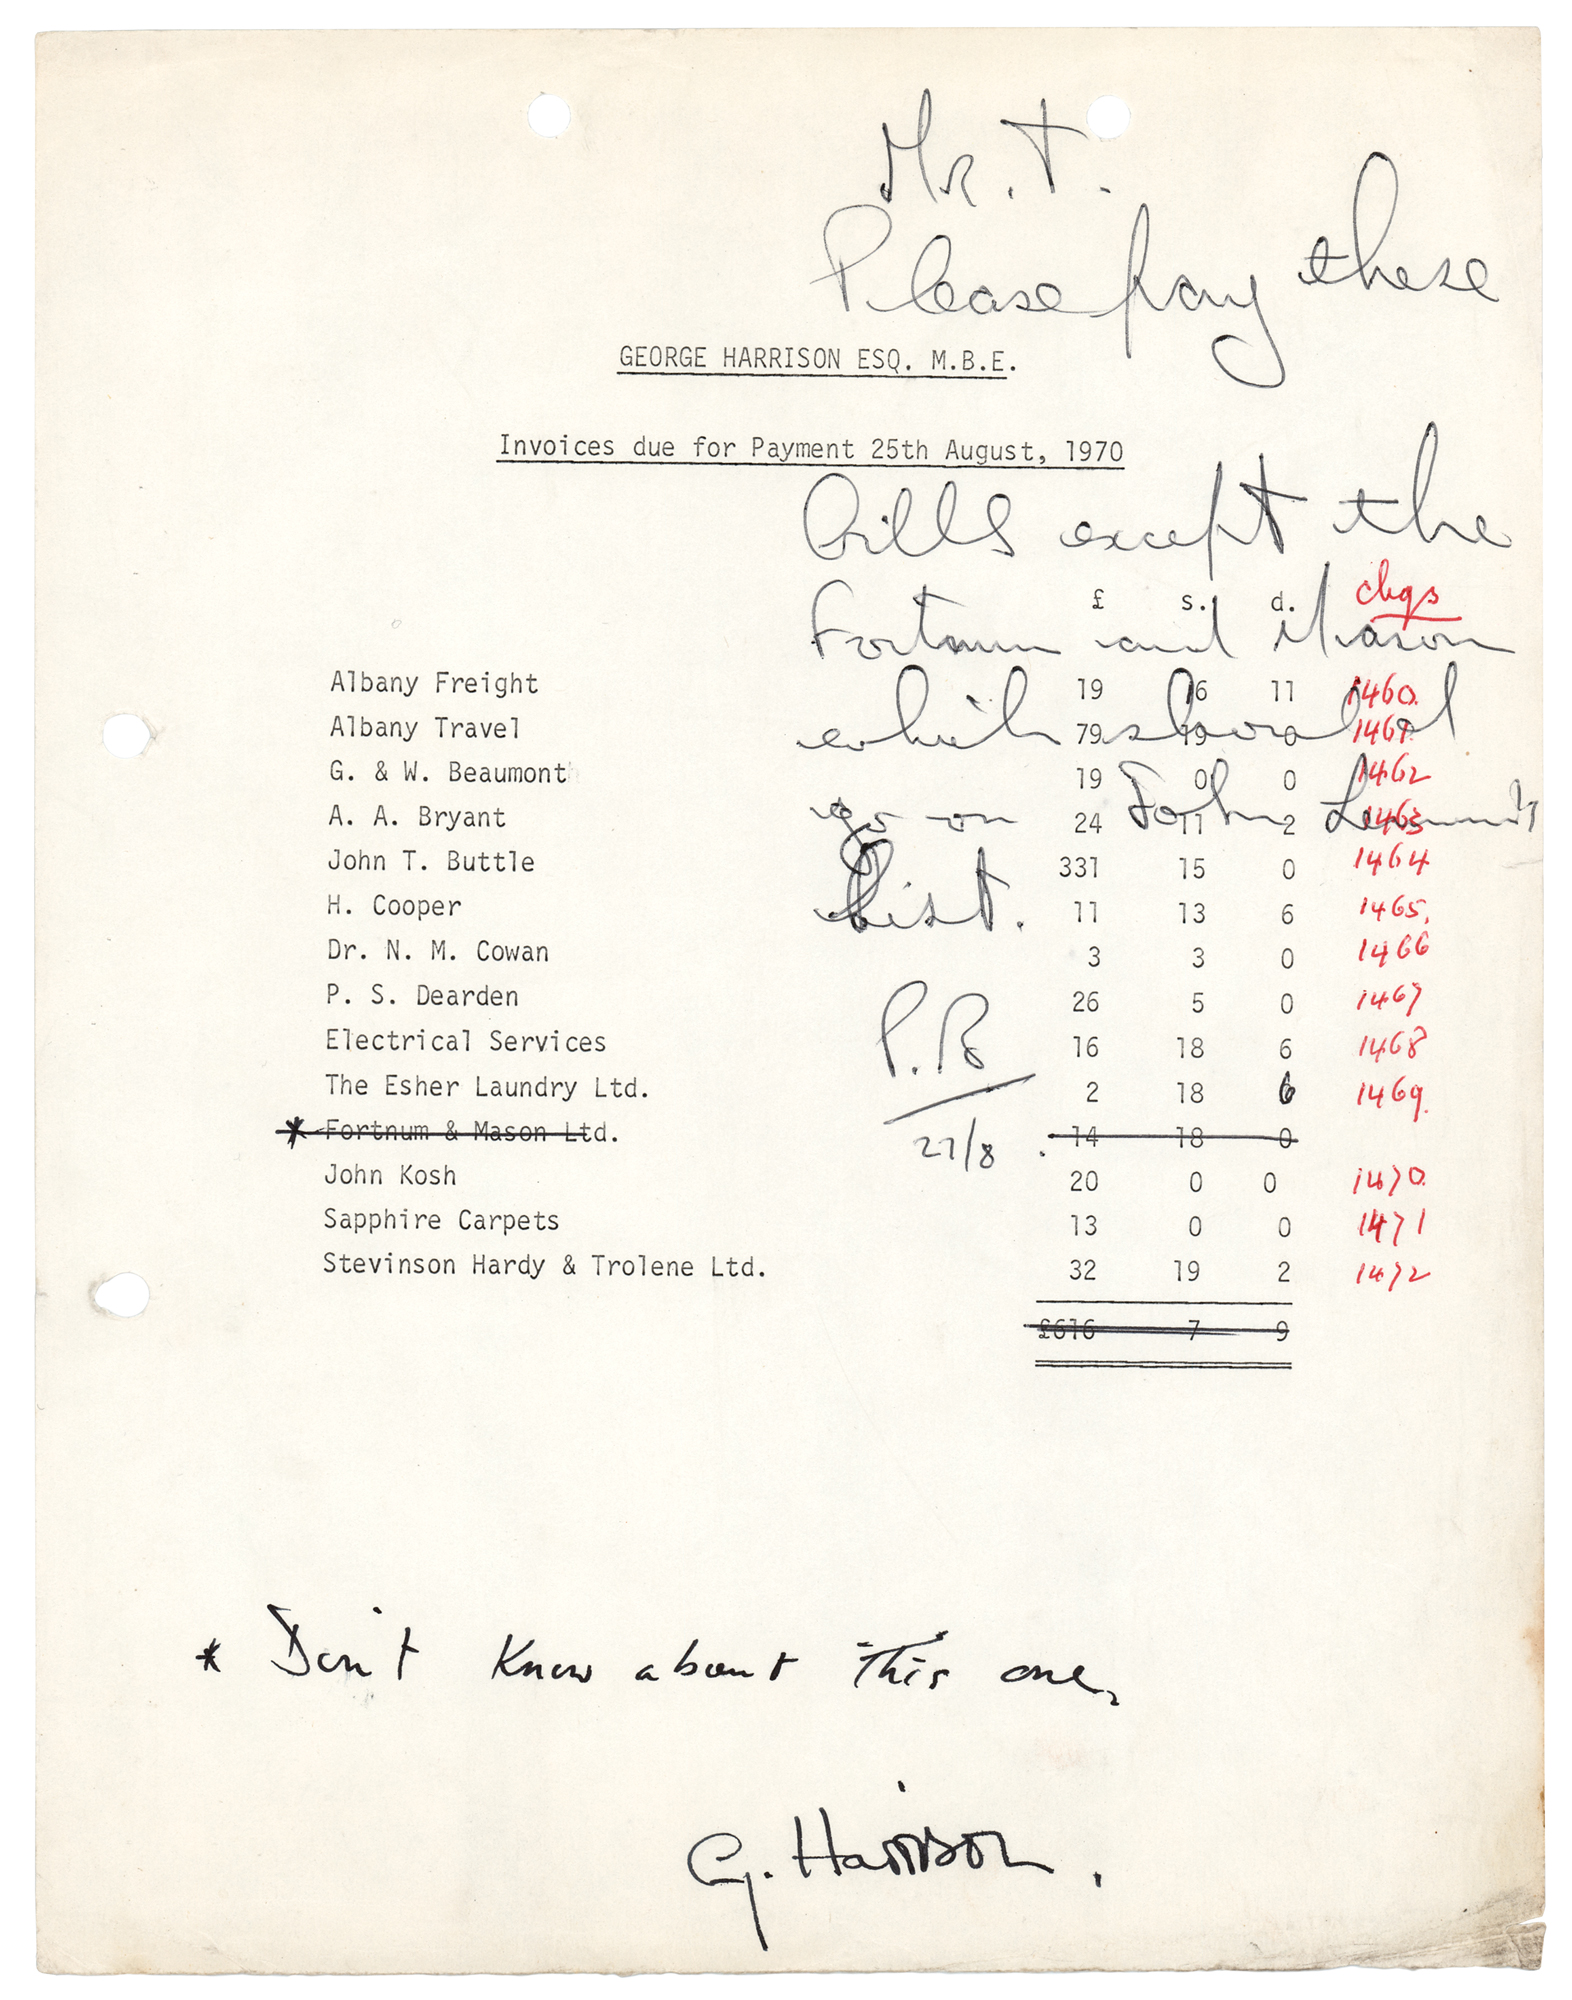 Mr. T.
Please pay these
GEORGE HARRISON ESQ. M.B.E.
Invoices due for Payment 25th August, 1970
bills except the
£ s. d. chqs
Fortnum and Mason
Albany Freight 19 16 11 1460.
which should
Albany Travel 79 19 0 1461
G. & W. Beaumont 19 0 0 1462
go on John Lennon's
A. A. Bryant 24 11 2 1463
John T. Buttle 331 15 0 1464
list.
H. Cooper 11 13 6 1465.
Dr. N. M. Cowan 3 3 0 1466
P. S. Dearden 26 5 0 1467
P.B
Electrical Services 16 18 6 1468
The Esher Laundry Ltd. 2 18 6 1469.
* Fortnum & Mason Ltd. 14 18 0
27/8
John Kosh 20 0 0 1470.
Sapphire Carpets 13 0 0 1471
Stevinson Hardy & Trolene Ltd. 32 19 2 1472
£616 7 9
* Don't Know about this one.
G. Harrison.